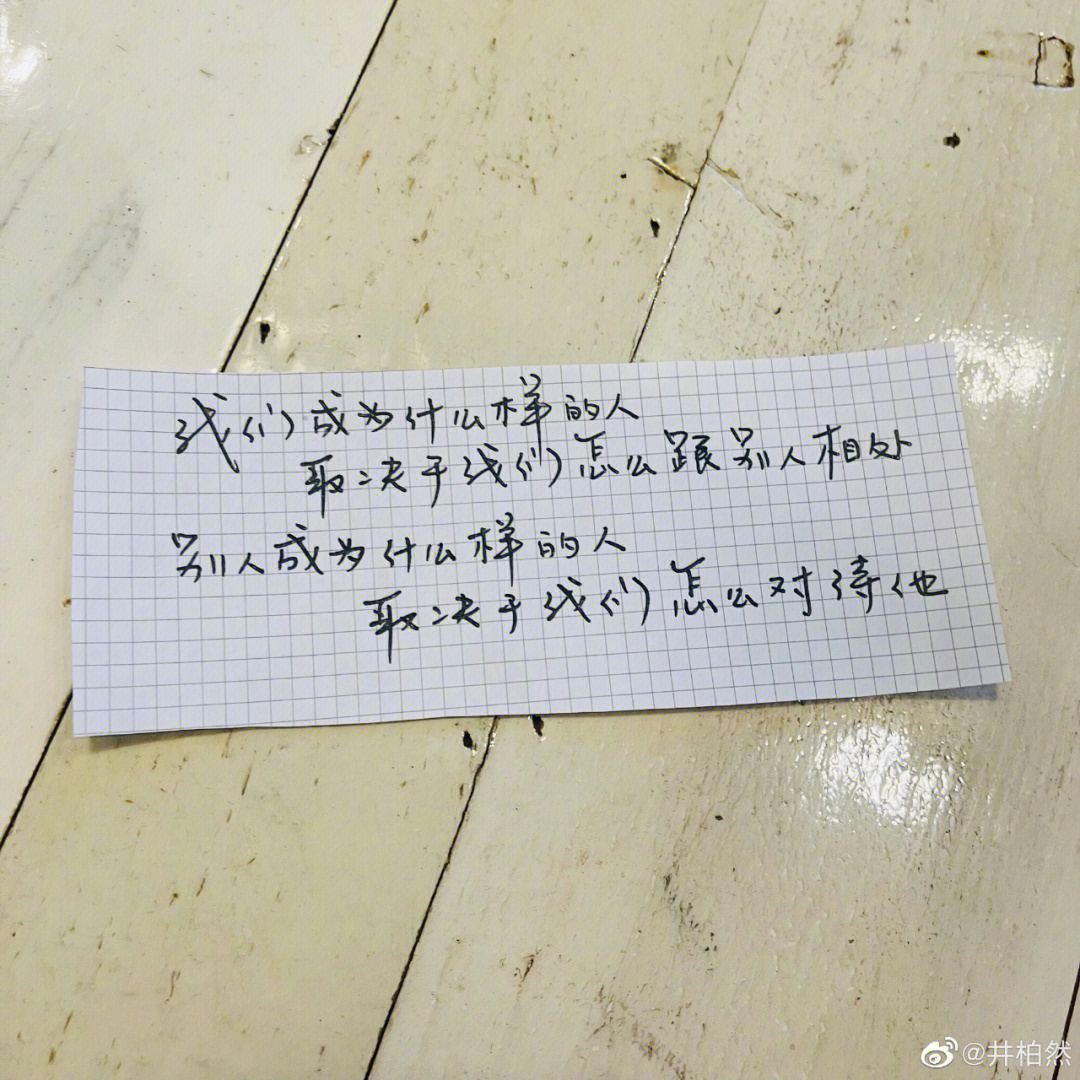 我们成为什么样的人
取决于我们怎么跟别人相处
别人成为什么样的人
取决于我们怎么对待他
@井柏然